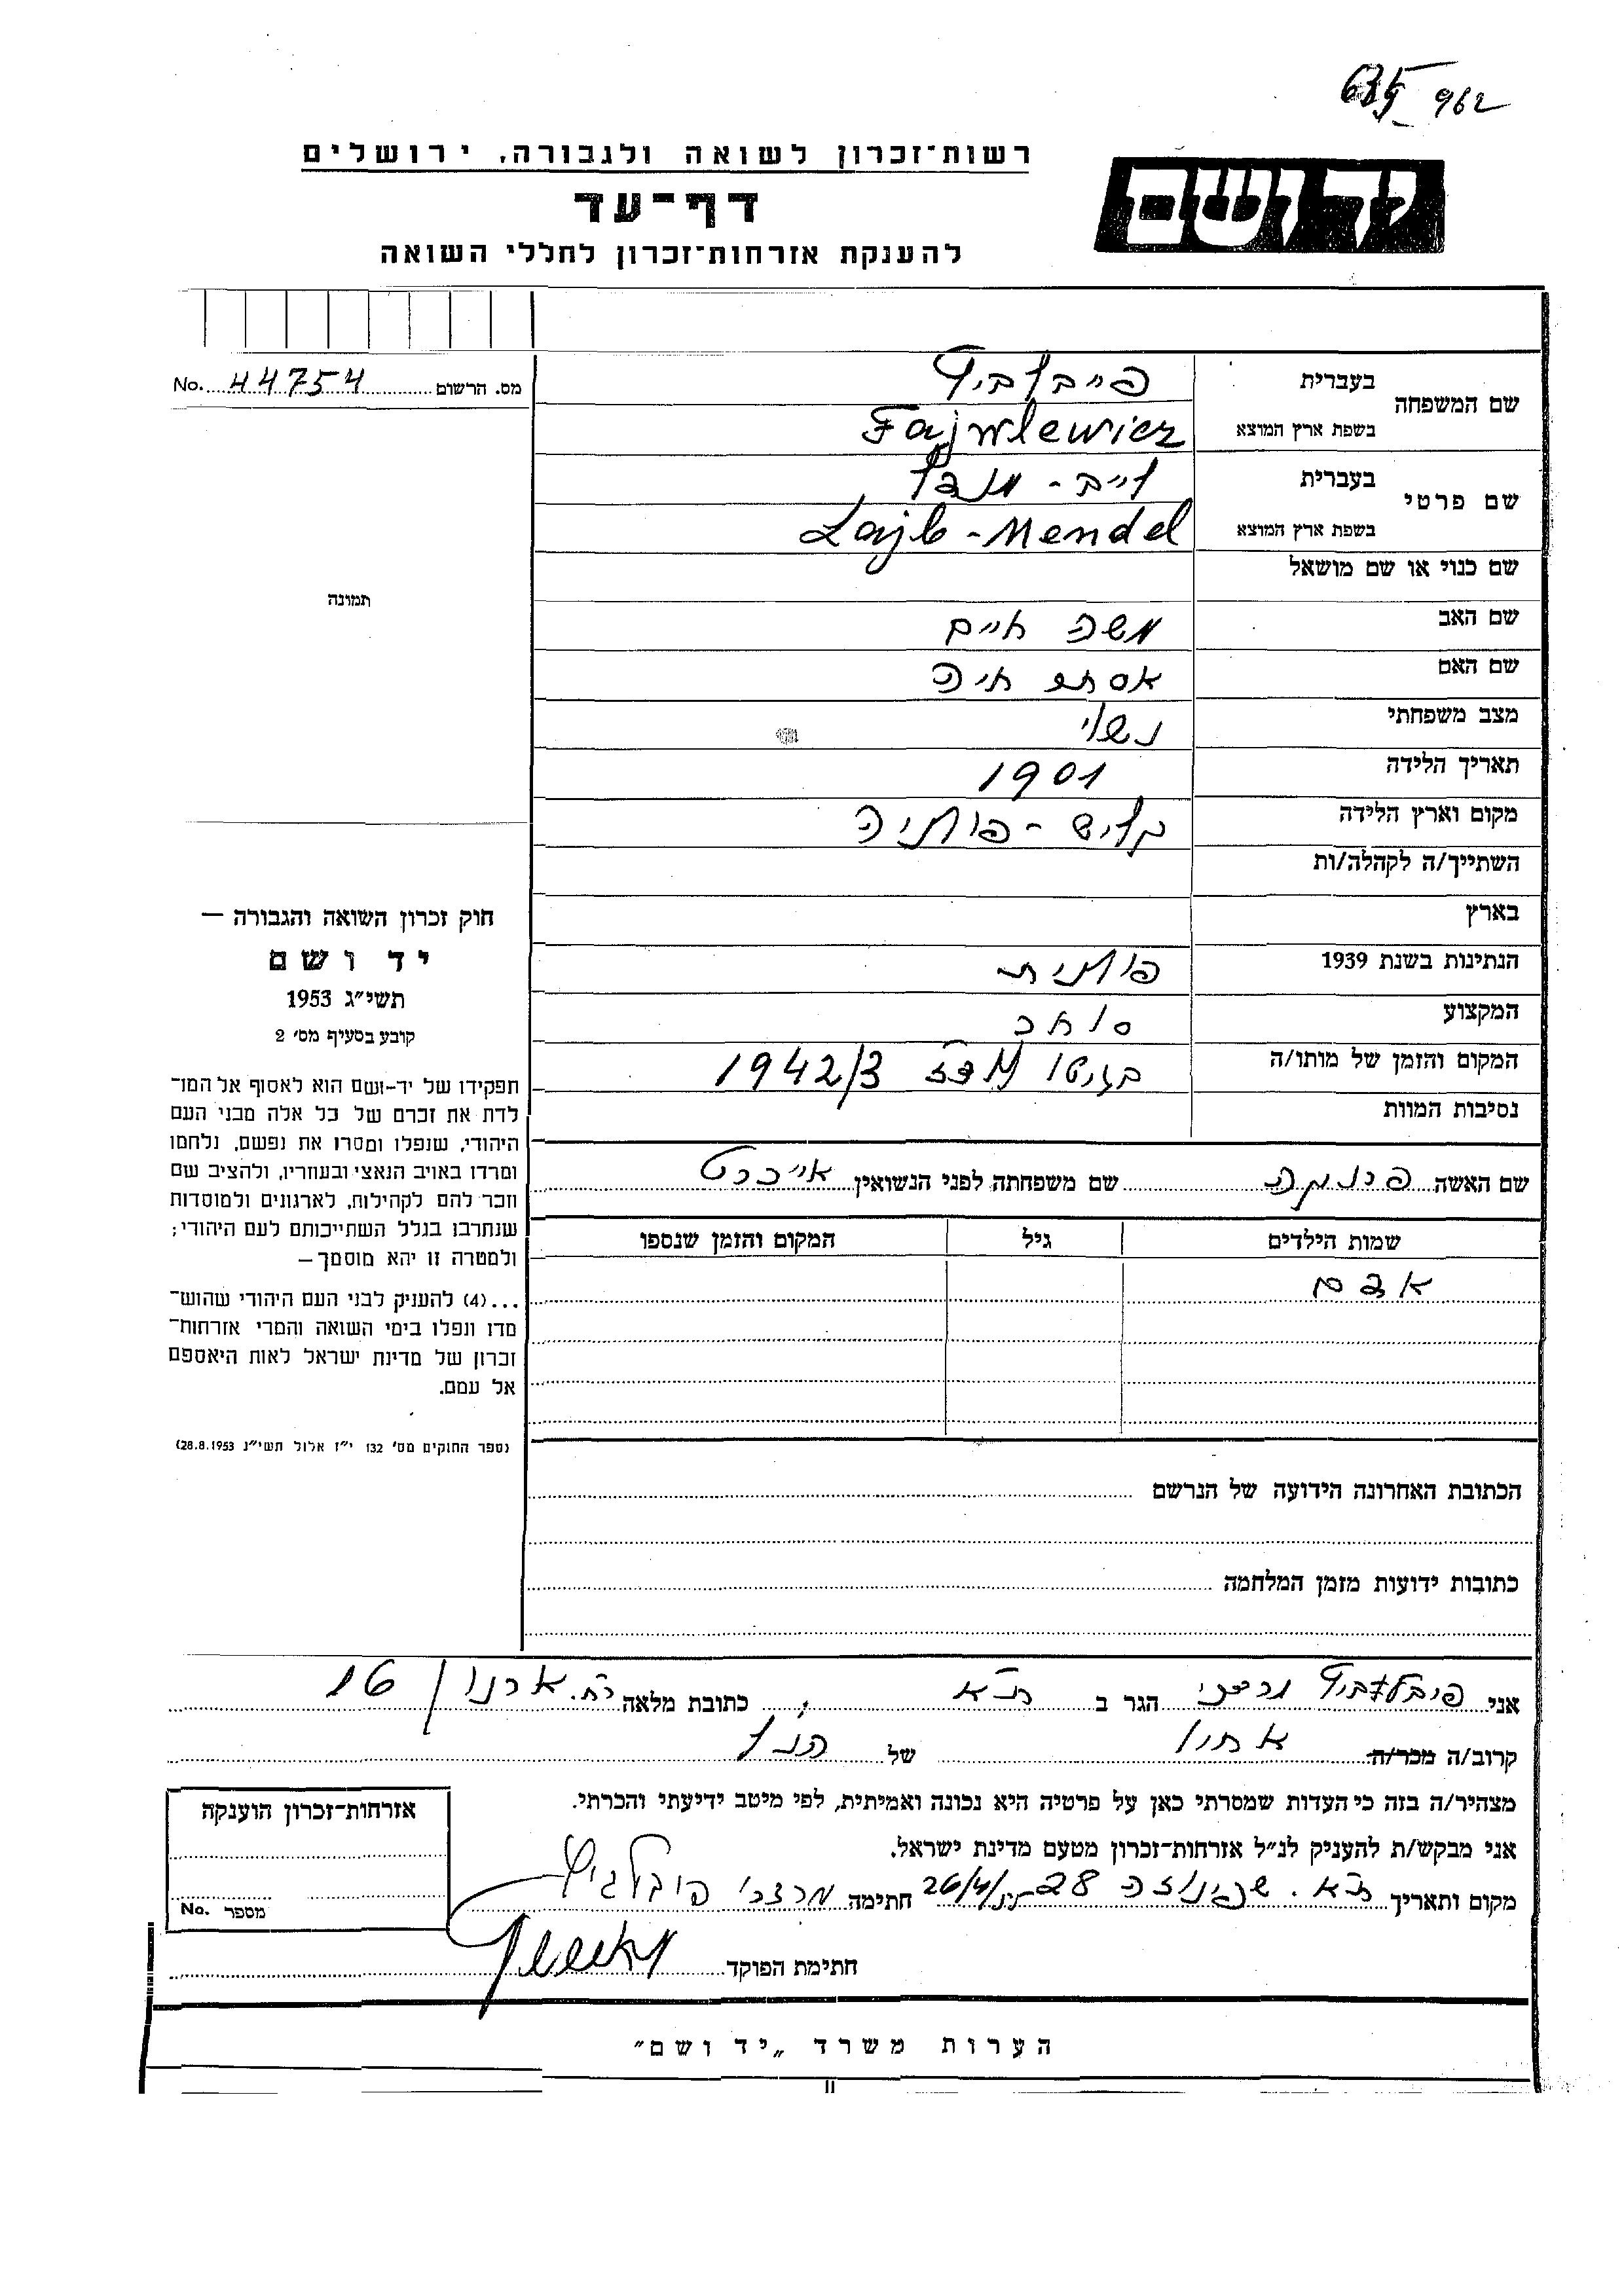 962
רשות־זכרון לשואה ולגבורה, ירושלים
יד ושם
דף־עד
להענקת אזרחות־זכרון לחללי השואה
מס. הרשום 44754 No.
שם המשפחה
בעברית פייבלביץ
בשפת ארץ המוצא Fajwlewicz
שם פרטי
בעברית לייב - מנדל
בשפת ארץ המוצא Lajb - Mendel
שם כנוי או שם מושאל
תמונה
שם האב משה חיים
שם האם אסתר חיה
מצב משפחתי נשוי
תאריך הלידה 1901
מקום וארץ הלידה קליש - פולניה
השתייך/ה לקהלה/ות
בארץ
הנתינות בשנת 1939 פולנית
המקצוע סוחר
המקום והזמן של מותו/ה בגיטו לודז 1942/3
נסיבות המוות
חוק זכרון השואה והגבורה —
יד ושם
תשי״ג 1953
קובע בסעיף מס׳ 2
תפקידו של יד-ושם הוא לאסוף אל המו־
לדת את זכרם של כל אלה מבני העם
היהודי, שנפלו ומסרו את נפשם, נלחמו
ומרדו באויב הנאצי ובעוזריו, ולהציב שם
וזכר להם לקהילות, לארגונים ולמוסדות
שנחרבו בגלל השתייכותם לעם היהודי;
ולמטרה זו יהא מוסמך —
...(4) להעניק לבני העם היהודי שהוש־
מדו ונפלו בימי השואה והמרי אזרחות־
זכרון של מדינת ישראל לאות היאספם
אל עמם.
(ספר החוקים מס׳ 132 י״ז אלול תשי״ג 28.8.1953)
שם האשה שם משפחתה לפני הנשואין
שמות הילדים גיל המקום והזמן שנספו
אדם
הכתובת האחרונה הידועה של הנרשם
כתובות ידועות מזמן המלחמה
אני פיבלביץ הגר ב ת״א כתובת מלאה רח. ארנון 16
קרוב/ה מכר/ה אחיו של הנ״ל
מצהיר/ה בזה כי העדות שמסרתי כאן על פרטיה היא נכונה ואמיתית, לפי מיטב ידיעתי והכרתי.
אני מבקש/ת להעניק לנ״ל אזרחות־זכרון מטעם מדינת ישראל.
מקום ותאריך ת״א. 28 חתימה
חתימת הפוקד
אזרחות־זכרון הוענקה
מספר No.
הערות משרד „יד ושם״